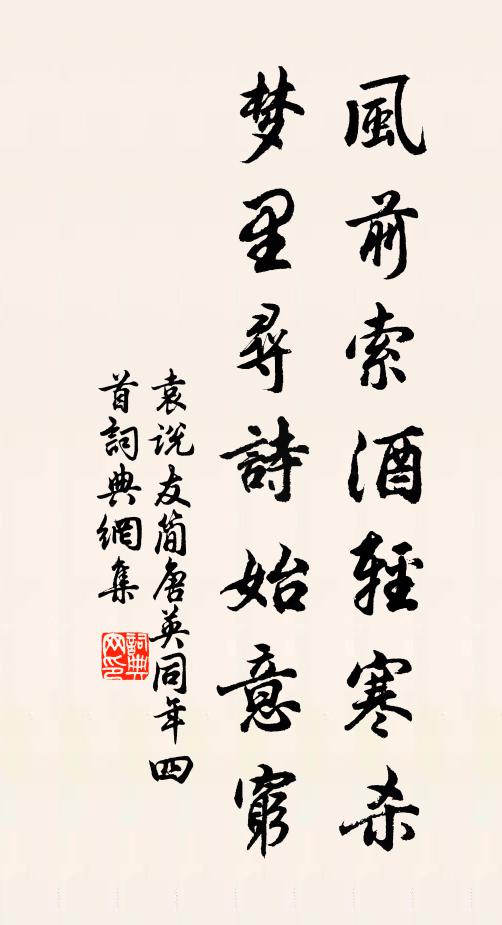 風前索酒輕寒杀
梦里尋詩始意窮
袁说友简唐英同年四
首詞典網集
詞典网印